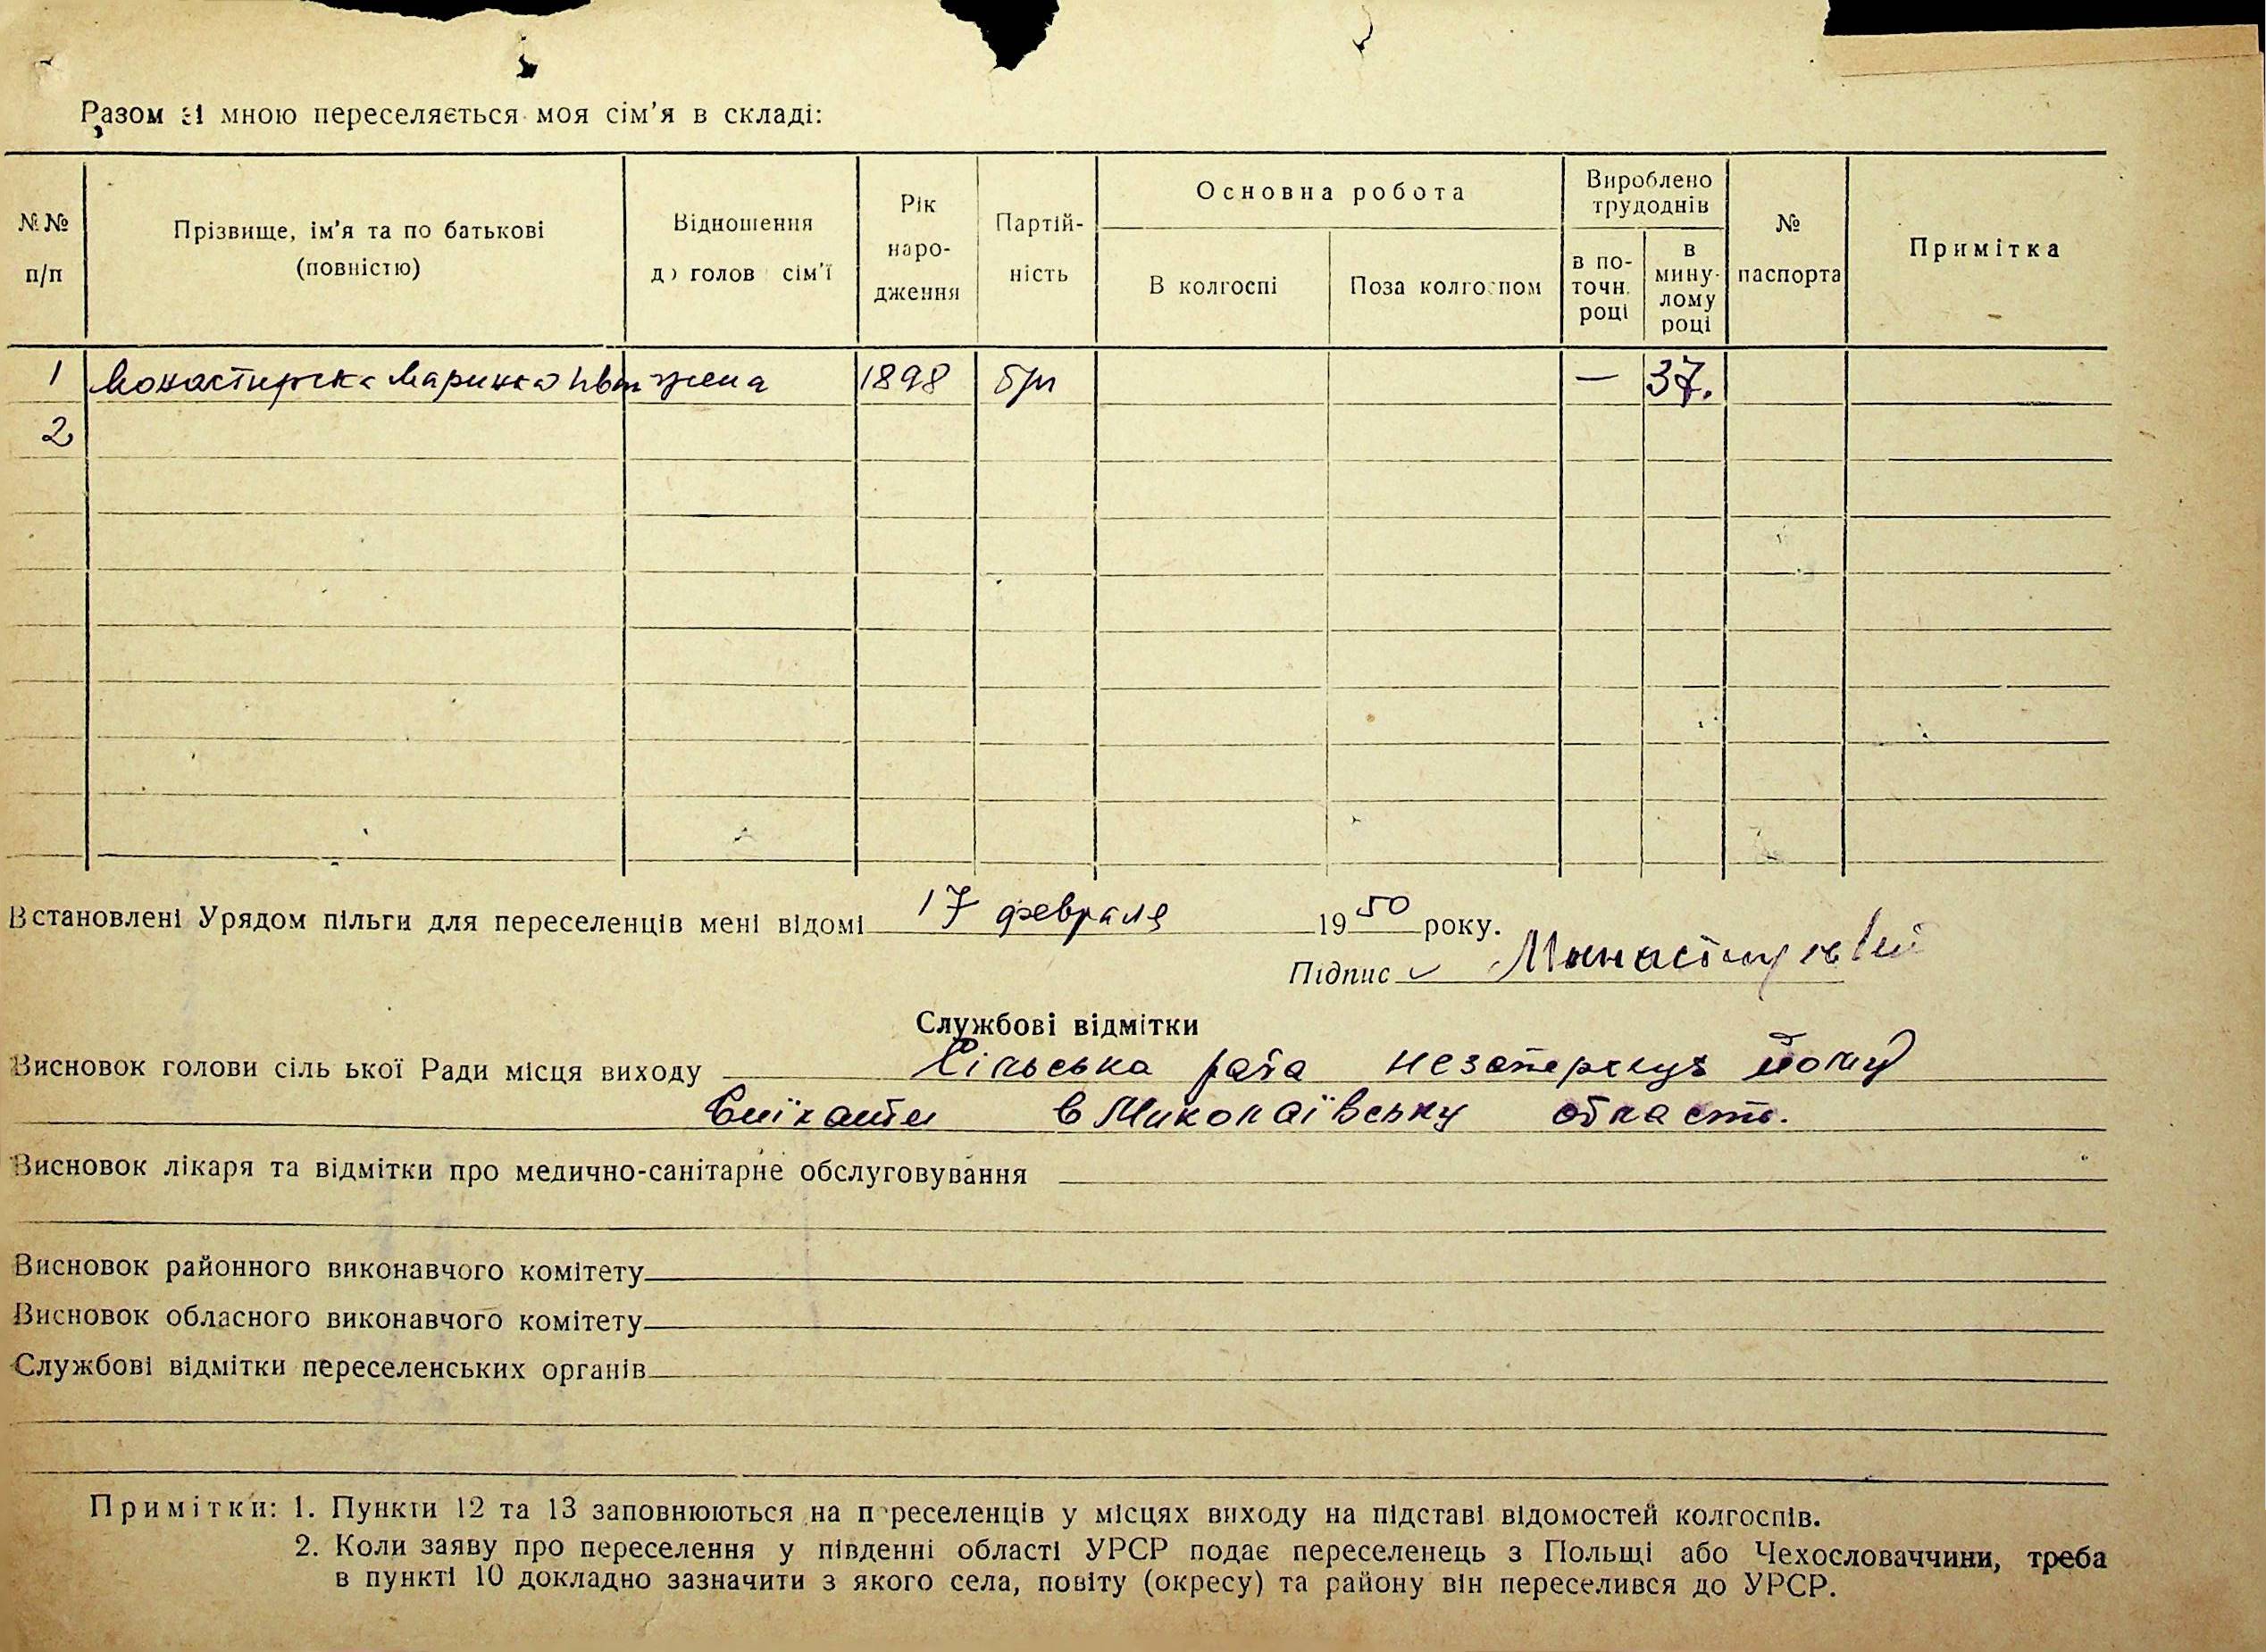 Разом зі мною переселяється моя сім'я в складі:
№№ п/п
Прізвище, ім'я та по батькові (повністю)
Відношення до голов сім'ї
Рік народження
Партійність
Основна робота
В колгоспі
Поза колгоспом
Вироблено трудоднів
в поточн. році
в минулому році
№ паспорта
Примітка
1 Монастирска Маринка жена 1898 б/п — 37.
2
Встановлені Урядом пільги для переселенців мені відомі 17 февраля 1950 року.
Підпис Манастирский
Службові відмітки
Висновок голови сільської Ради місця виходу Сільська рада незаперечує йому
виїхати в Миколаївську область.
Висновок лікаря та відмітки про медично-санітарне обслуговування
Висновок районного виконавчого комітету
Висновок обласного виконавчого комітету
Службові відмітки переселенських органів
Примітки: 1. Пункти 12 та 13 заповнюються на переселенців у місцях виходу на підставі відомостей колгоспів.
2. Коли заяву про переселення у південні області УРСР подає переселенець з Польщі або Чехословаччини, треба
в пункті 10 докладно зазначити з якого села, повіту (окресу) та району він переселився до УРСР.